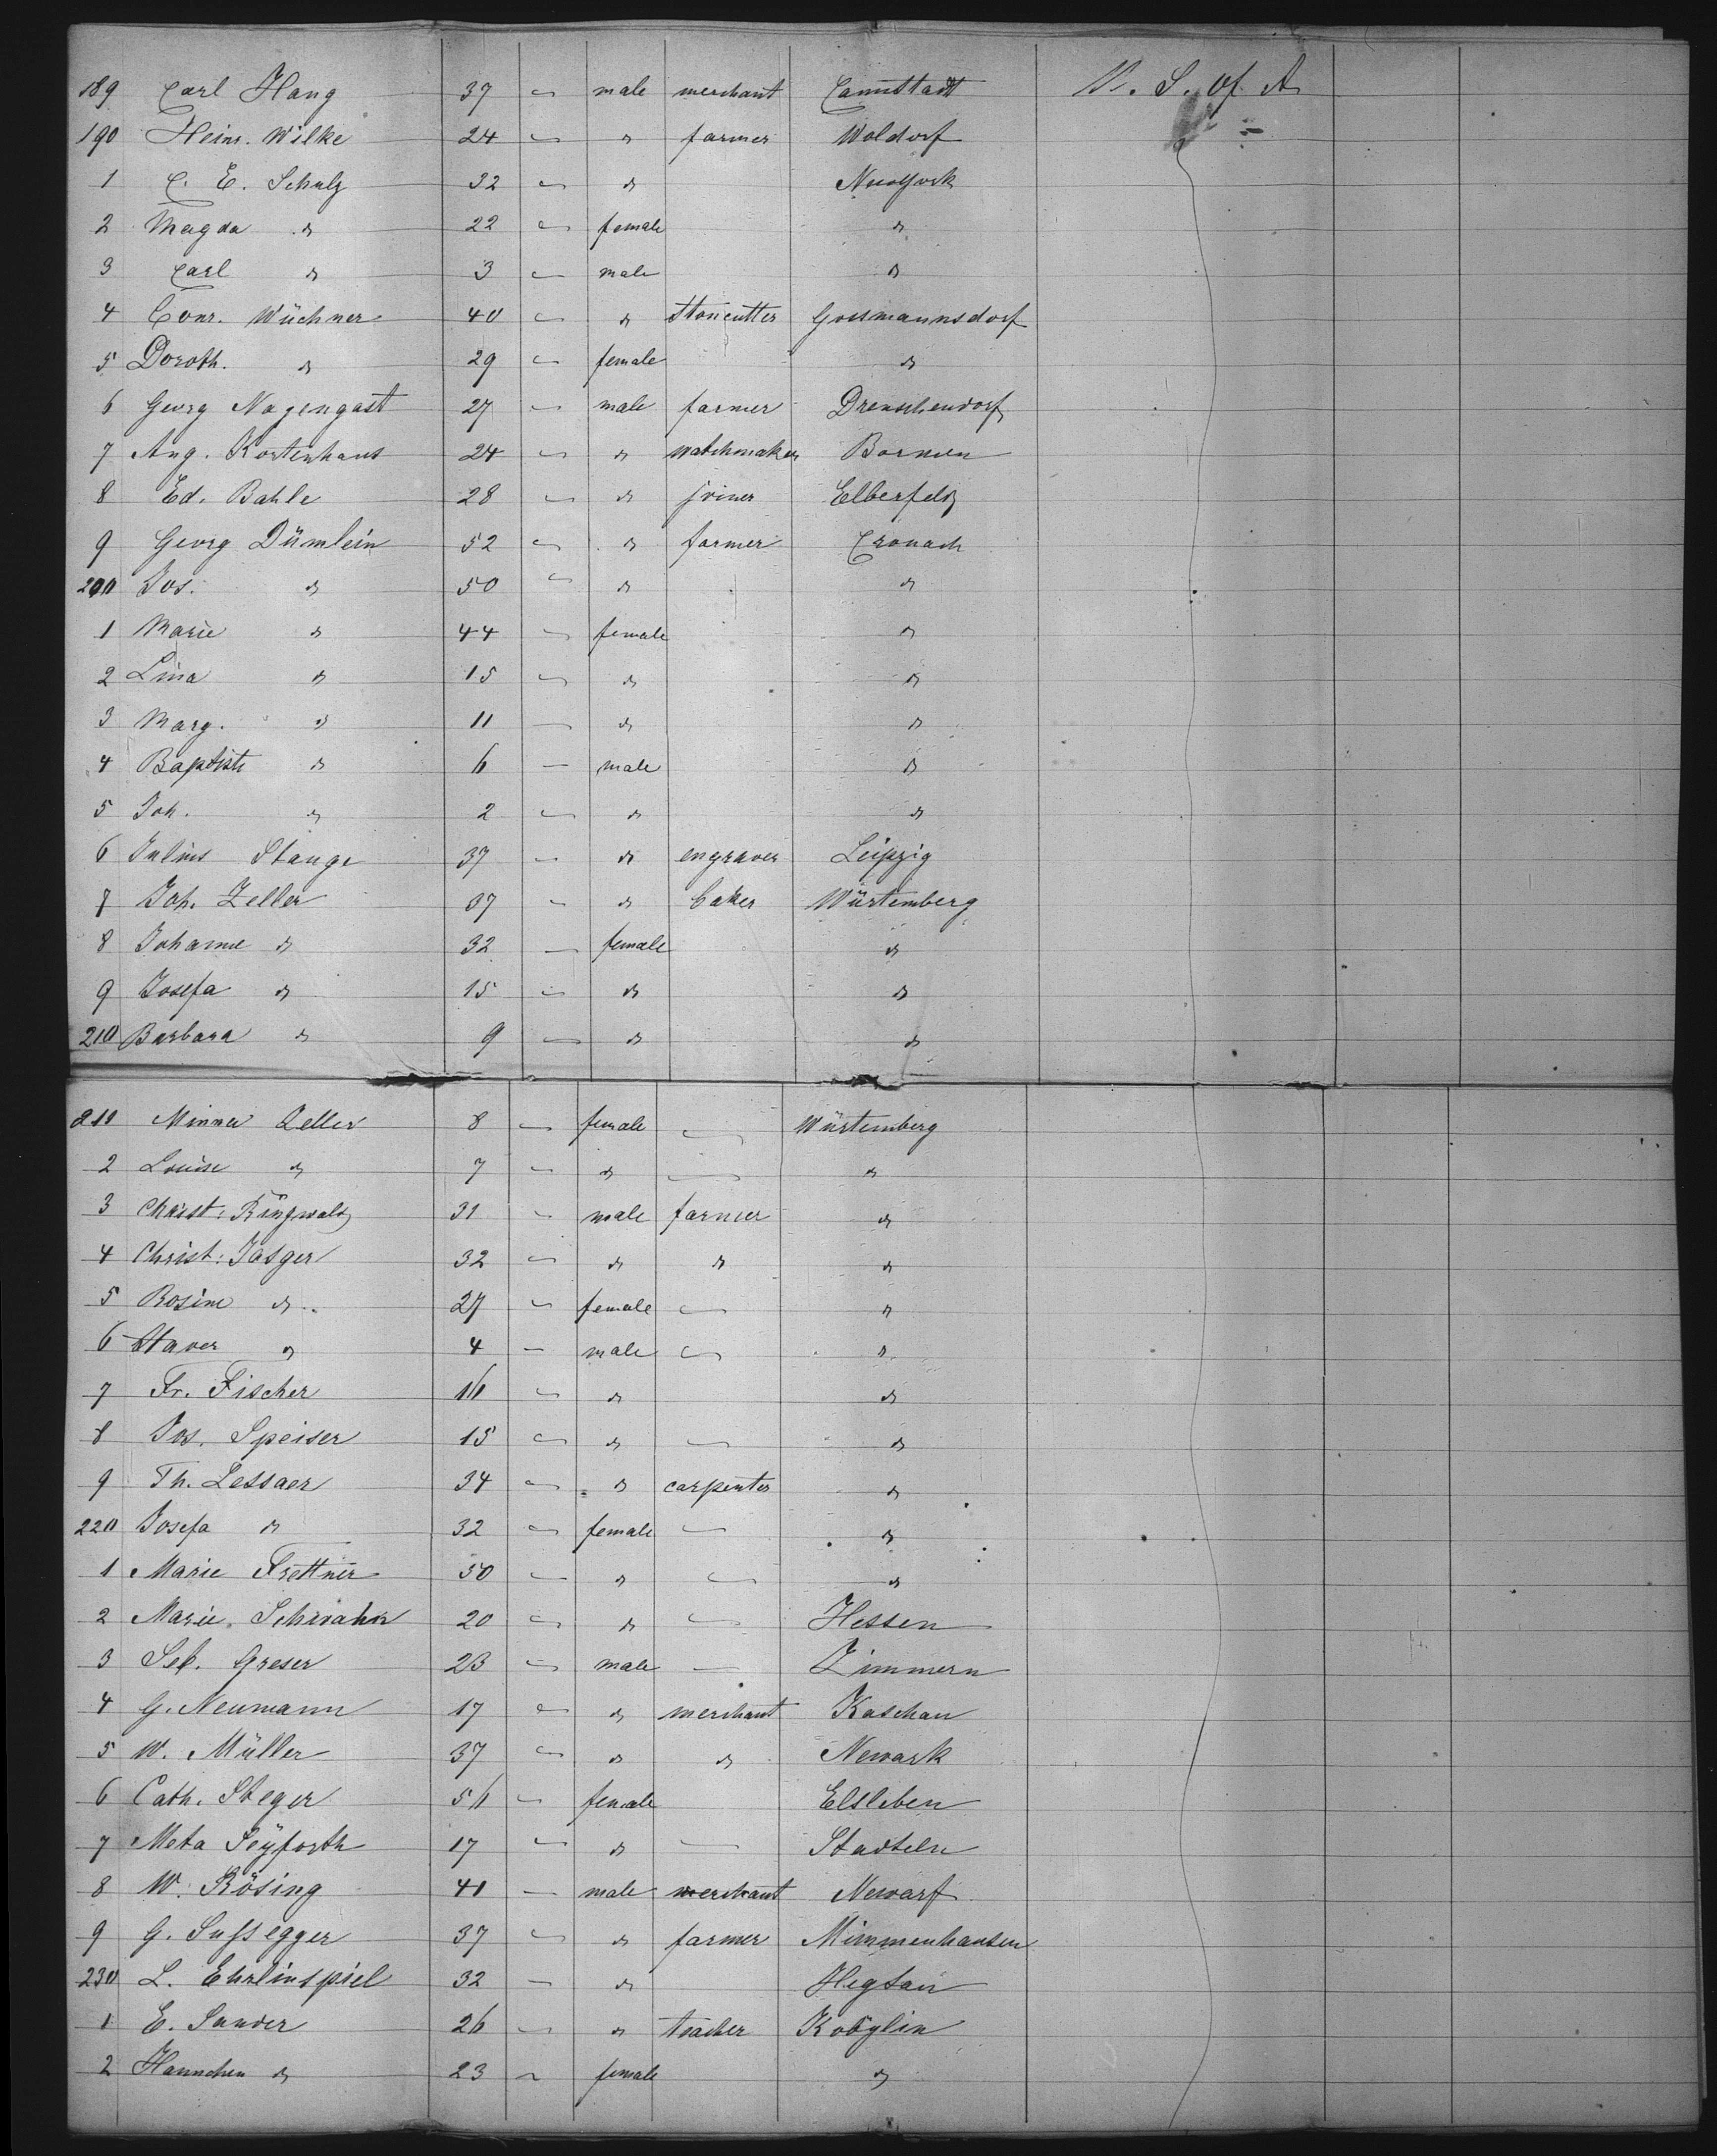 189 Carl Hang 37 male merchant Cannstadt U. S. of A.
190 Heinr. Wilke 24 " farmer Woldorf "
1 C. E. Schulz 32 " NewYork
2 Magda " 22 female "
3 Carl " 3 male "
4 Conr. Wüchner 40 " stoncutter Gossmannsdorf
5 Doroth. " 29 female "
6 Georg Nagengast 27 male farmer Drenschendorf
7 Aug. Kortenhaus 24 " watchmaker Barmen
8 Ed. Bahle 28 " joiner Elberfeld
9 Georg Dümlein 52 " farmer Cronach
200 Jos. " 50 " "
1 Marie " 44 female "
2 Lina " 15 " "
3 Marg. " 11 " "
4 Baptiste " 6 male "
5 Joh. " 2 " "
6 Julius Stange 37 " engraver Leipzig
7 Joh. Zeller 37 " baker Würtemberg
8 Johanne " 32 female "
9 Josefa " 15 " "
210 Barbara " 9 " "
211 Minna Zeller 8 female Würtemberg
2 Louise " 7 " "
3 Christ: Ringwald 31 male farmer "
4 Christ: Jasger 32 " " "
5 Rosine " 27 female "
6 Xaver " 4 male "
7 Fr. Fischer 16 " "
8 Jos. Speiser 15 " "
9 Th. Lessaer 34 " carpenter "
220 Josefa " 32 female "
1 Marie Frettner 50 " "
2 Marie Schwahn 20 " Hessen
3 Seb. Greser 23 male Zimmern
4 G. Neumann 17 " merchant Kaschau
5 W. Müller 37 " " Newark
6 Cath. Steger 56 female Elsleben
7 Meta Seyforth 17 " Stadteln
8 W. Rösing 41 male merchant Newarf
9 G. Sussegger 37 " farmer Mimmenhausen
230 L. Ehrlinspiel 32 "
1 E. Sander 26 " teacher Kobylin
2 Hannchen " 23 female "